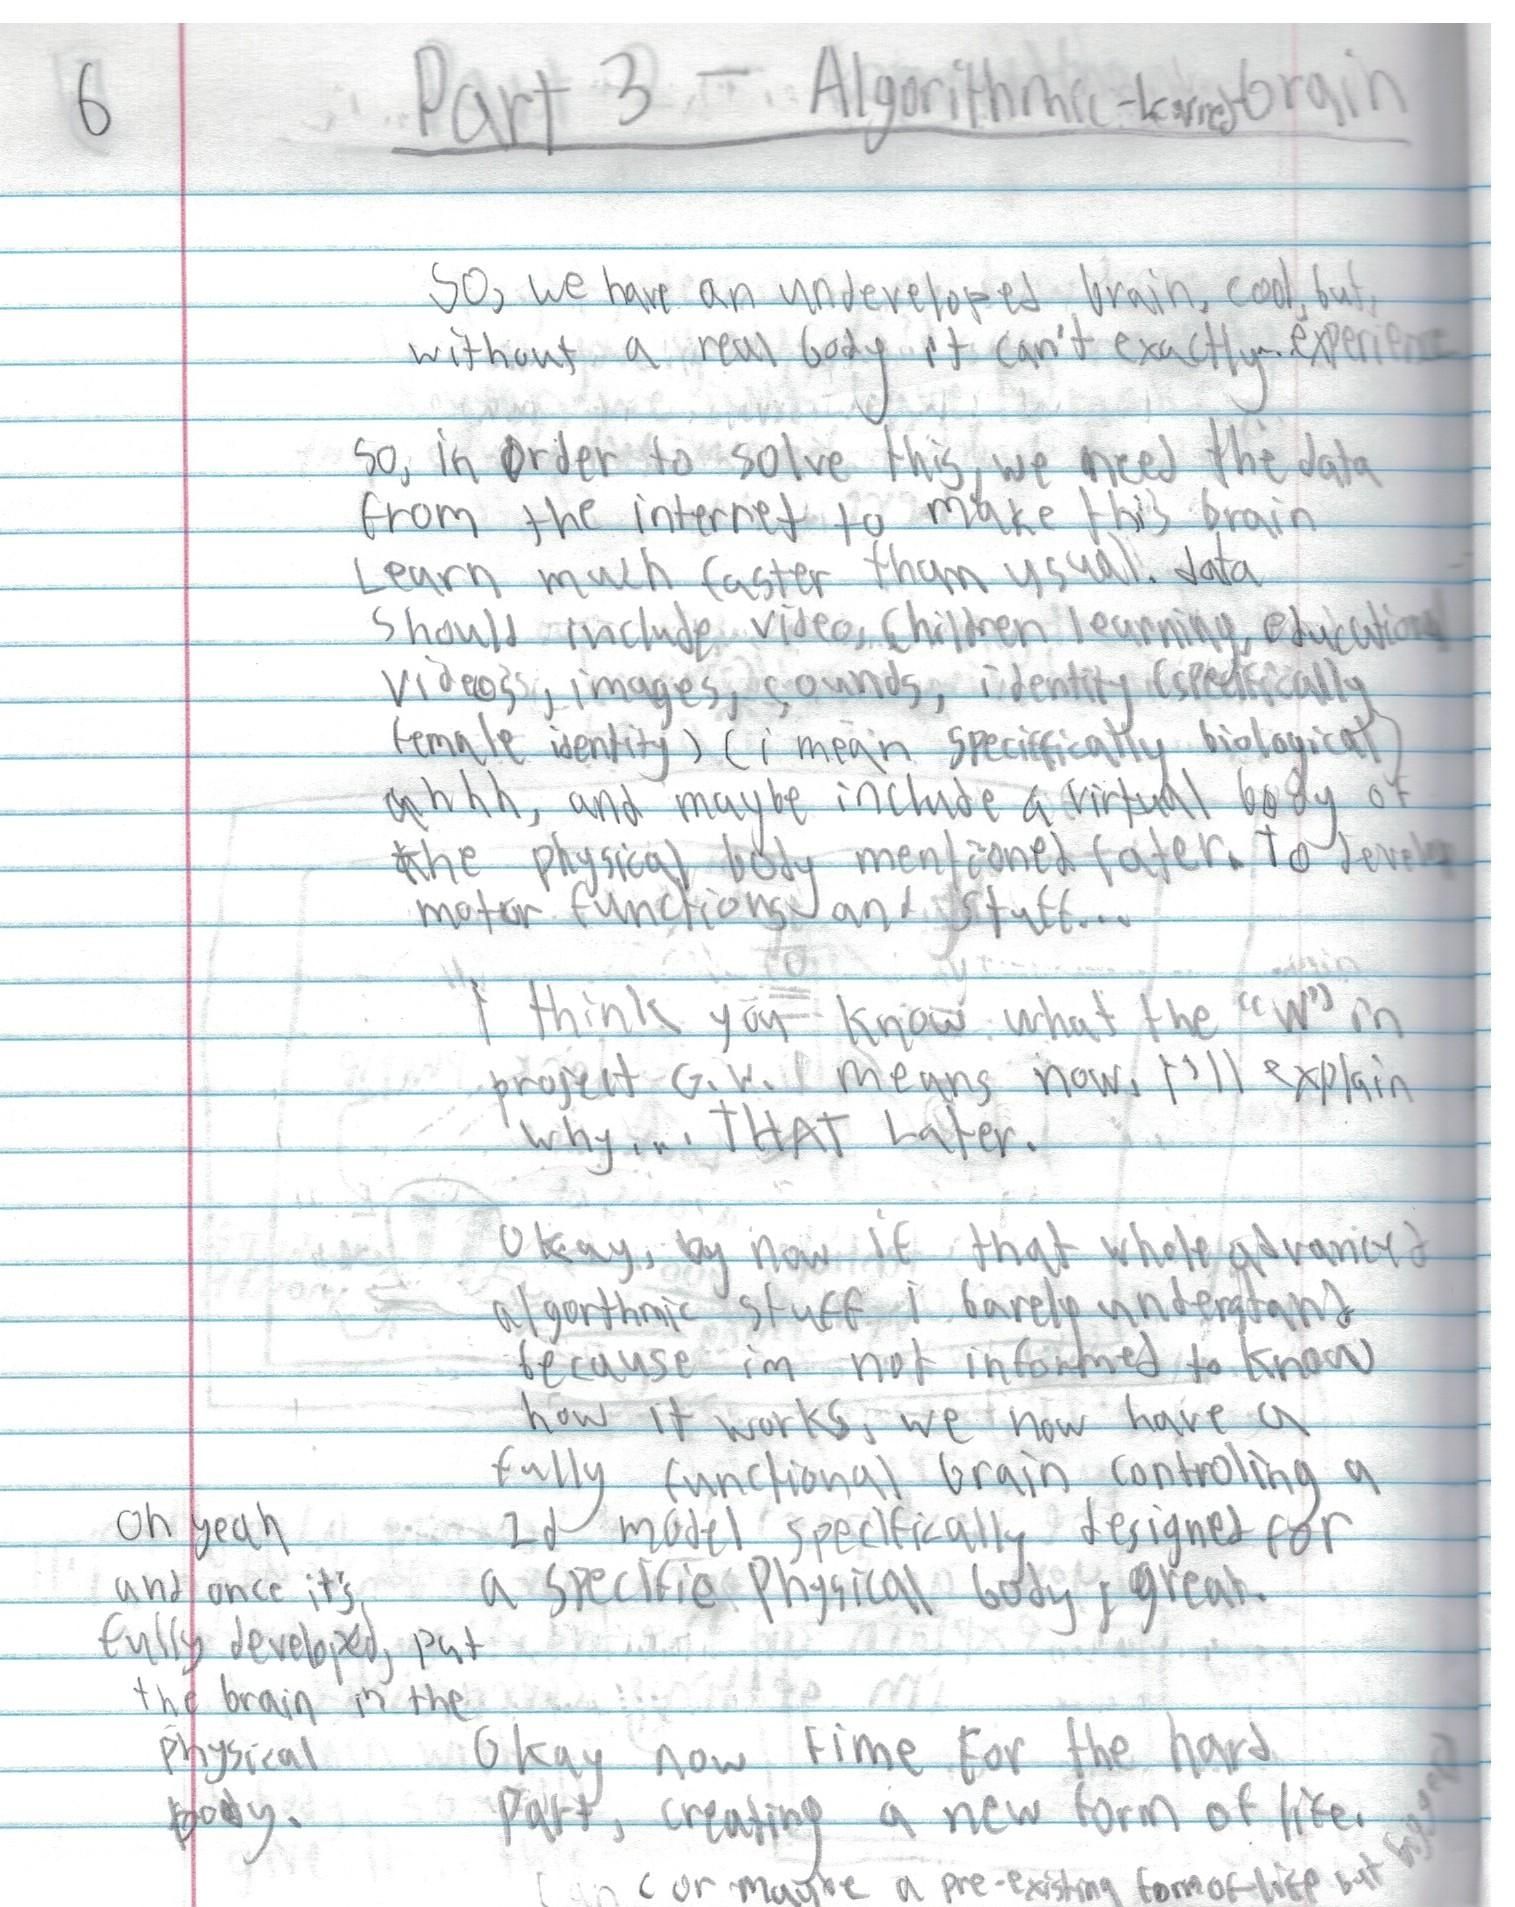 6
Part 3 - Algorithmic-learned brain
So, we have an undeveloped brain, cool, but,
without a real body it can't exactly... experience
so, in order to solve this, we need the data
from the internet to make this brain
Learn much faster than usual. data
should include, video, children learning, educational
videos, images, sounds, identity (specifically
female identity) (i mean speciffically biological)
ahhh, and maybe include a virtual body of
the physical body mentioned later. To develop
motor functions and stuff...
I think you know what the "W" in
project G.W. means now. I'll explain
why... THAT Later.
Okay, by now if that whole advanced
algorthmic stuff i barely understand
because im not informed to know
how it works, we now have a
fully functional brain controling a
2d model specifically designed for
a specific Physical body, great.
oh yeah
and once it's
fully developed, put
the brain in the
physical
body.
Okay now time For the hard
Part, creating a new form of life.
(or maybe a pre-existing form of life but bigger)